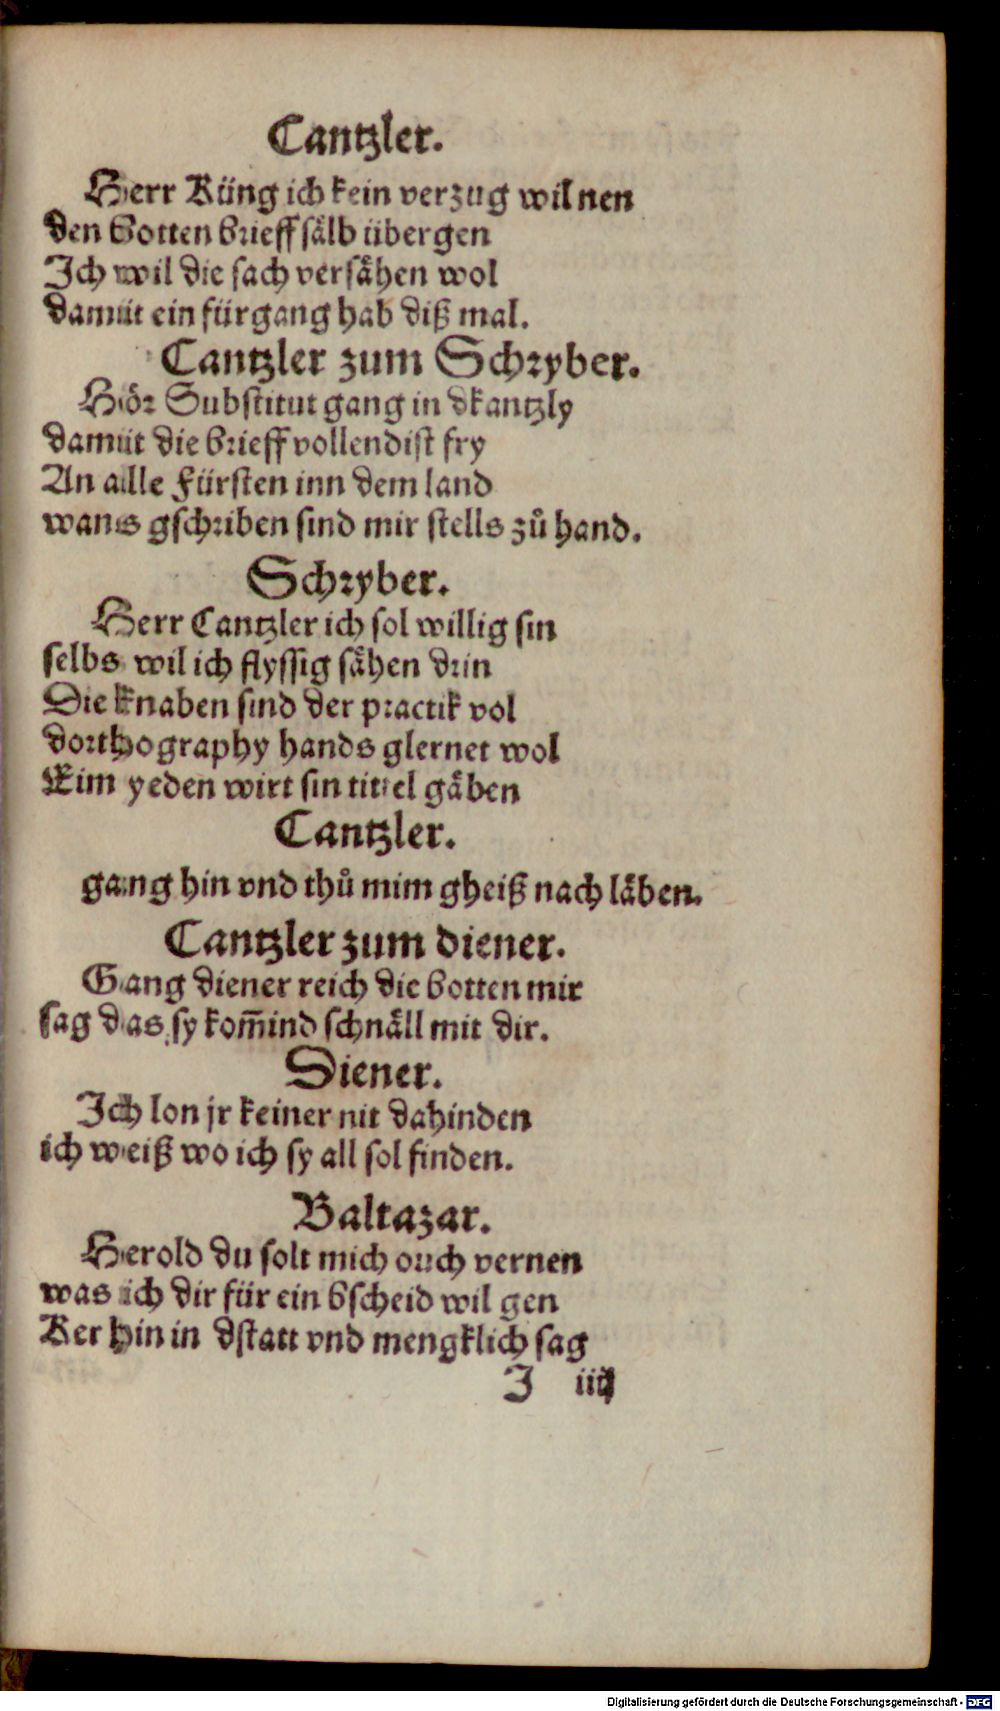 Cantzler.
Herr Küng ich kein verzug wil nen
den botten brieff sälb übergen
Ich wil die sach versähen wol
damit ein fürgang hab diß mal.
Cantzler zum Schryber.
Hör Substitut gang in dkantzly
damit die brieff vollendist fry
An alle Fürsten inn dem land
wans gschriben sind mir stells zů hand.
Schryber.
Herr Cantzler ich sol willig sin
selbs wil ich flyssig sähen drin
Die knaben sind der practik vol
dorthography hands glernet wol
Eim yeden wirt sin tittel gäben
Cantzler.
gang hin vnd thů mim gheiß nach läben.
Cantzler zum diener.
Gang diener reich die botten mir
sag das sy kom̄ind schnäll mit dir.
Diener.
Ich lon jr keiner nit dahinden
ich weiß wo ich sy all sol finden.
Baltazar.
Herold du solt mich ouch vernen
was ich dir für ein bscheid wil gen
Ker hin in dstatt vnd mengklich sag
I iiij
Digitalisierung gefördert durch die Deutsche Forschungsgemeinschaft - DFG